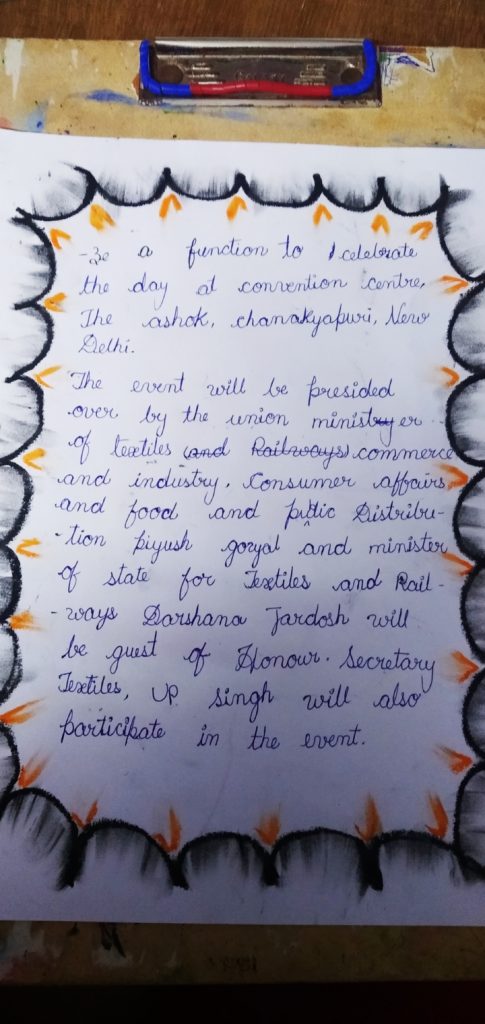 -ze a function to celebrate
the day at convention centre,
The ashok, chanakyapuri, New
Delhi.
The event will be presided
over by the union minister
of textiles (and Railways) commerce
and industry, Consumer affairs
and food and public Distribu-
-tion piyush goyal and minister
of state for Textiles and Rail-
-ways Darshana Jardosh will
be guest of Honour. Secretary
Textiles, UP singh will also
participate in the event.